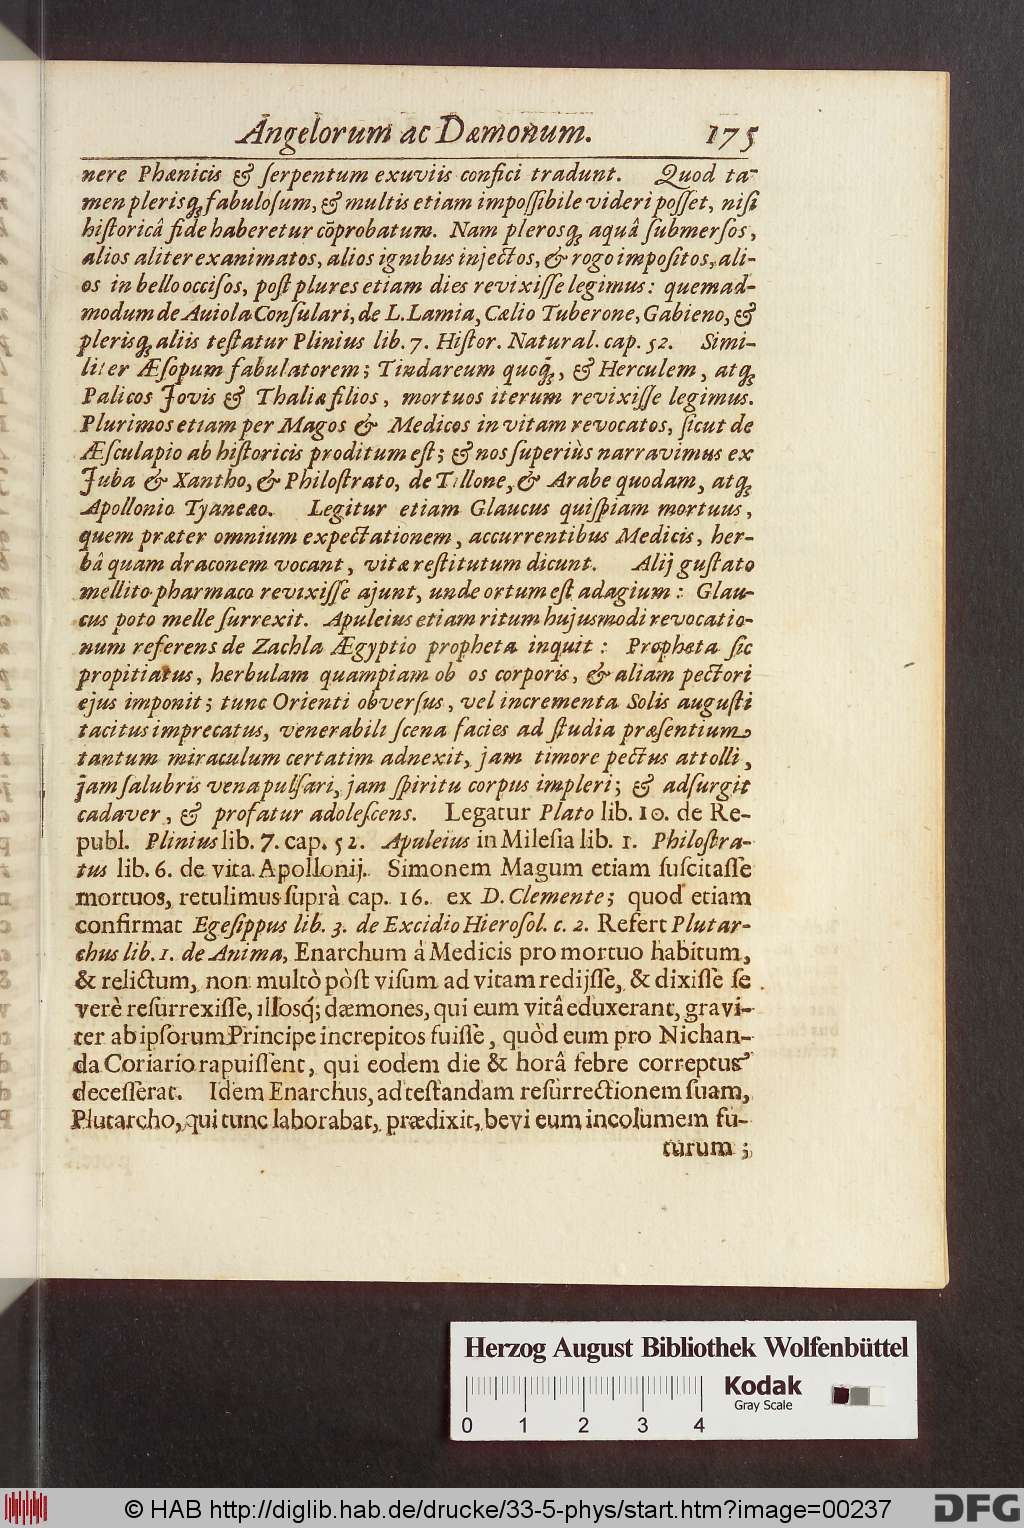 Angelorum ac Dæmonum. 175
nere Phœnicis & ſerpentum exuviis confici tradunt. Quod ta-
men plerisq́; fabuloſum, & multis etiam impoſſibile videri poſſet, niſi
hiſtoricâ fide haberetur cõprobatum. Nam plerosq́; aquâ ſubmerſos,
alios aliter exanimatos, alios ignibus injectos, & rogo impoſitos, ali-
os in bello occiſos, poſt plures etiam dies revixiſſe legimus: quemad-
modum de Aviola Conſulari, de L. Lamia, Cælio Tuberone, Gabieno, &
plerisq́; aliis teſtatur Plinius lib. 7. Hiſtor. Natural. cap. 52. Simi-
liter Æſopum fabulatorem; Tindareum quoq́;, & Herculem, atq́;
Palicos Jovis & Thaliæ filios, mortuos iterum revixiſſe legimus.
Plurimos etiam per Magos & Medicos in vitam revocatos, ſicut de
Æſculapio ab hiſtoricis proditum eſt; & nos ſuperiùs narravimus ex
Juba & Xantho, & Philoſtrato, de Tillone, & Arabe quodam, atq́;
Apollonio Tyaneæo. Legitur etiam Glaucus quiſpiam mortuus,
quem præter omnium expectationem, accurrentibus Medicis, her-
bâ quam draconem vocant, vitæ reſtitutum dicunt. Alij guſtato
mellito pharmaco revixiſſe ajunt, unde ortum eſt adagium: Glau-
cus poto melle ſurrexit. Apuleius etiam ritum hujusmodi revocatio-
num referens de Zachla Ægyptio propheta inquit: Propheta ſic
propitiatus, herbulam quampiam ob os corporis, & aliam pectori
ejus imponit; tunc Orienti obverſus, vel incrementa Solis auguſti
tacitus imprecatus, venerabili ſcena facies ad ſtudia præſentium
tantum miraculum certatim adnexit, jam timore pectus attolli,
jam ſalubris vena pulſari, jam ſpiritu corpus impleri; & adſurgit
cadaver, & profatur adoleſcens. Legatur Plato lib. 10. de Re-
publ. Plinius lib. 7. cap. 52. Apuleius in Mileſia lib. 1. Philoſtra-
tus lib. 6. de vita Apollonij. Simonem Magum etiam ſuſcitaſſe
mortuos, retulimus ſuprà cap. 16. ex D. Clemente; quod etiam
confirmat Egeſippus lib. 3. de Excidio Hieroſol. c. 2. Refert Plutar-
chus lib. 1. de Anima, Enarchum à Medicis pro mortuo habitum,
& relictum, non multò pòſt viſum ad vitam redijſſe, & dixiſſe ſe
verè reſurrexiſſe, illosq́; dæmones, qui eum vitâ eduxerant, gravi-
ter ab ipſorum Principe increpitos fuiſſe, quòd eum pro Nichan-
da Coriario rapuiſſent, qui eodem die & horâ febre correptus
deceſſerat. Idem Enarchus, ad teſtandam reſurrectionem ſuam,
Plutarcho, qui tunc laborabat, prædixit, bevi eum incolumem fu-
turum;
Herzog August Bibliothek Wolfenbüttel
Kodak
Gray Scale
0 1 2 3 4
© HAB http://diglib.hab.de/drucke/33-5-phys/start.htm?image=00237
DFG